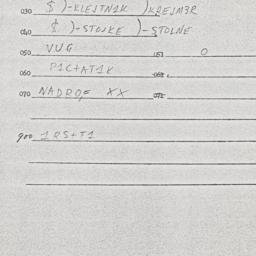 030 $ )-KLEJTN1K )KREJM3R
040 $ )-STOJKE )-STOLNE
050 VUG 051 0
060 P1C+AT1K
070 NADROE XX
900 1RS+T1